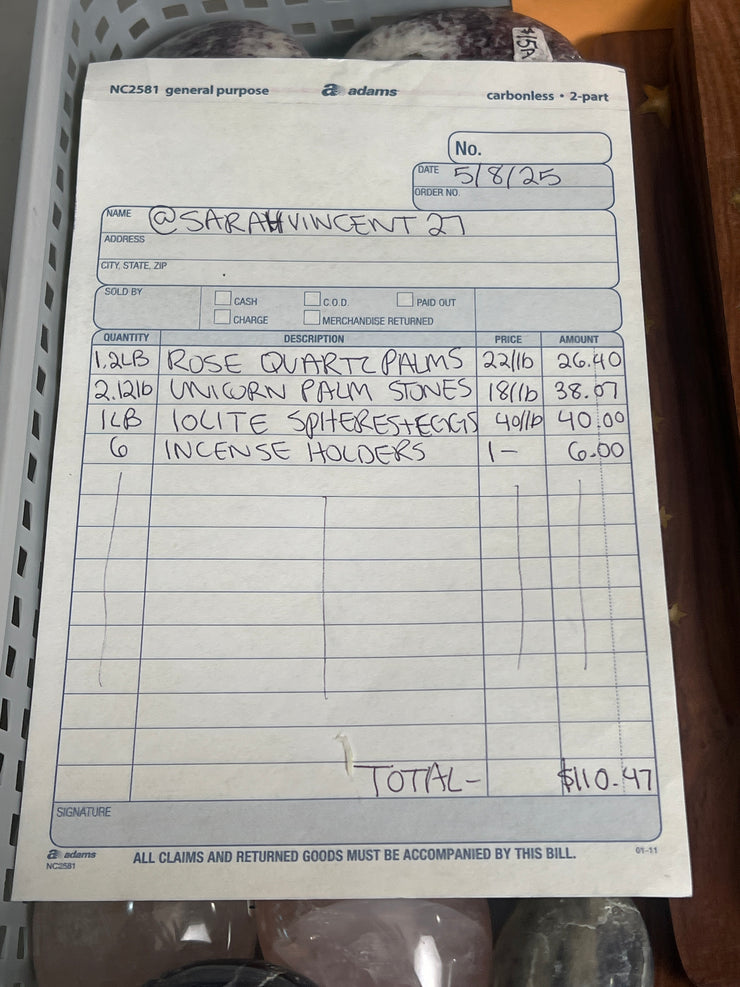 $15A
NC2581 general purpose a adams carbonless • 2-part
No.
DATE 5/8/25
ORDER NO.
NAME @SARAHVINCENT27
ADDRESS
CITY, STATE, ZIP
SOLD BY CASH C.O.D. PAID OUT
CHARGE MERCHANDISE RETURNED
QUANTITY DESCRIPTION PRICE AMOUNT
1.2LB ROSE QUARTZ PALMS 22/lb 26.40
2.12lb UNICORN PALM STONES 18/lb 38.07
1LB IOLITE SPHERES+EGGS 40/lb 40.00
6 INCENSE HOLDERS 1- 6.00
TOTAL- $110.47
SIGNATURE
a adams
NC2581
ALL CLAIMS AND RETURNED GOODS MUST BE ACCOMPANIED BY THIS BILL.
01-11